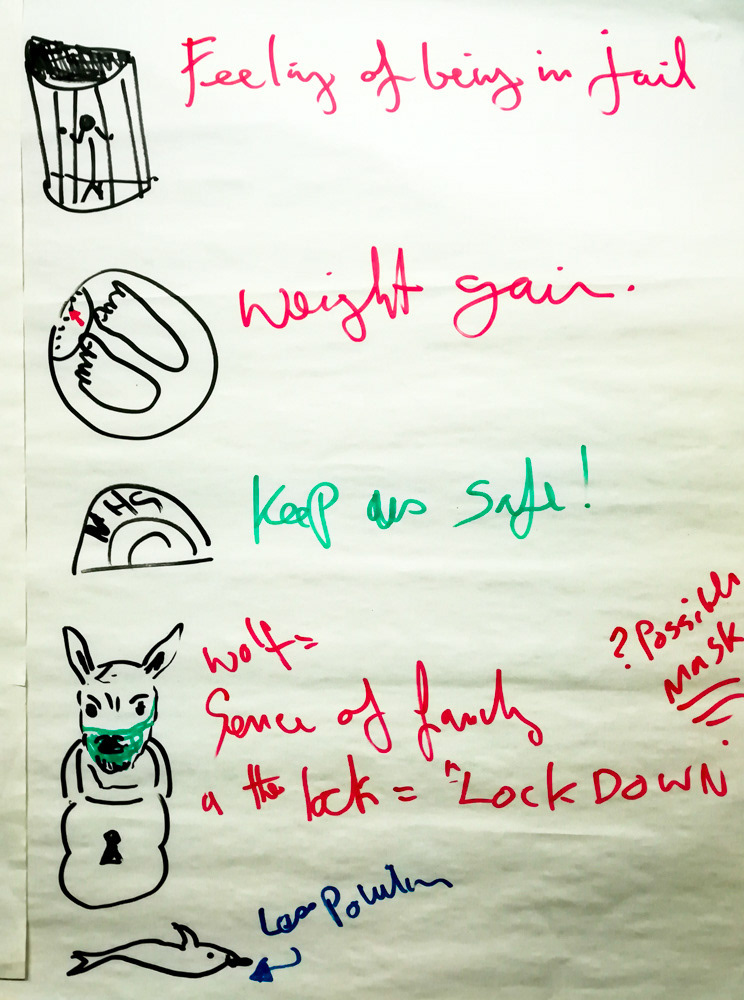 Feeling of being in jail
Weight gain.
NHS
Keep us safe!
? Possible
Mask
wolf =
Sence of family
a the lock = "LOCK DOWN
Less Polution